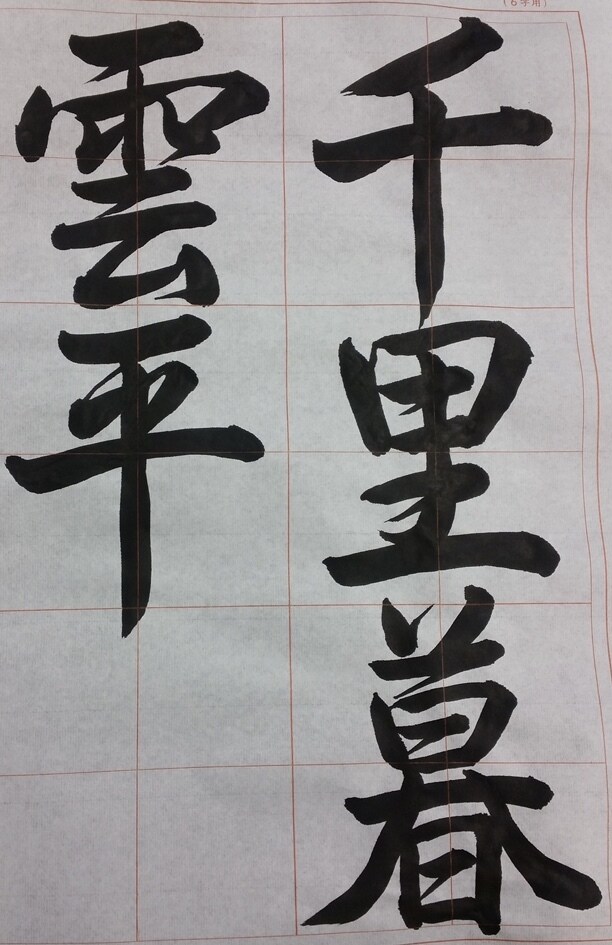 (6字用)
千里暮
雲平